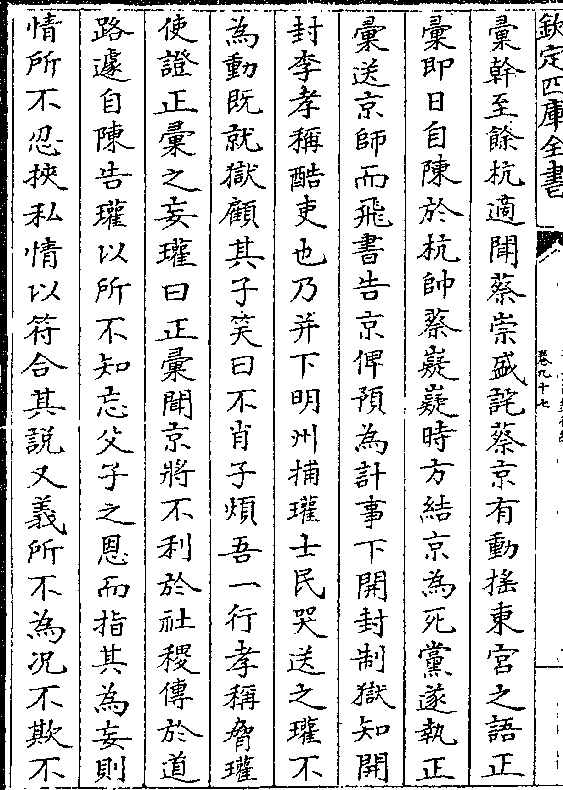 欽定四庫全書
卷九十七
彚幹至餘杭適聞蔡崇盛詫蔡京有動揺東宫之語正
彚即日自陳於杭帥蔡嶷嶷時方結京為死黨遂執正
彚送京師而飛書告京俾預為計事下開封制獄知開
封李孝稱酷吏也乃并下明州捕瓘士民哭送之瓘不
為動既就獄顧其子笑曰不肖子煩吾一行孝稱脅瓘
使證正彚之妄瓘曰正彚聞京將不利於社稷傳於道
路遽自陳告瓘以所不知忘父子之恩而指其為妄則
情所不忍挾私情以符合其說又義所不為况不欺不